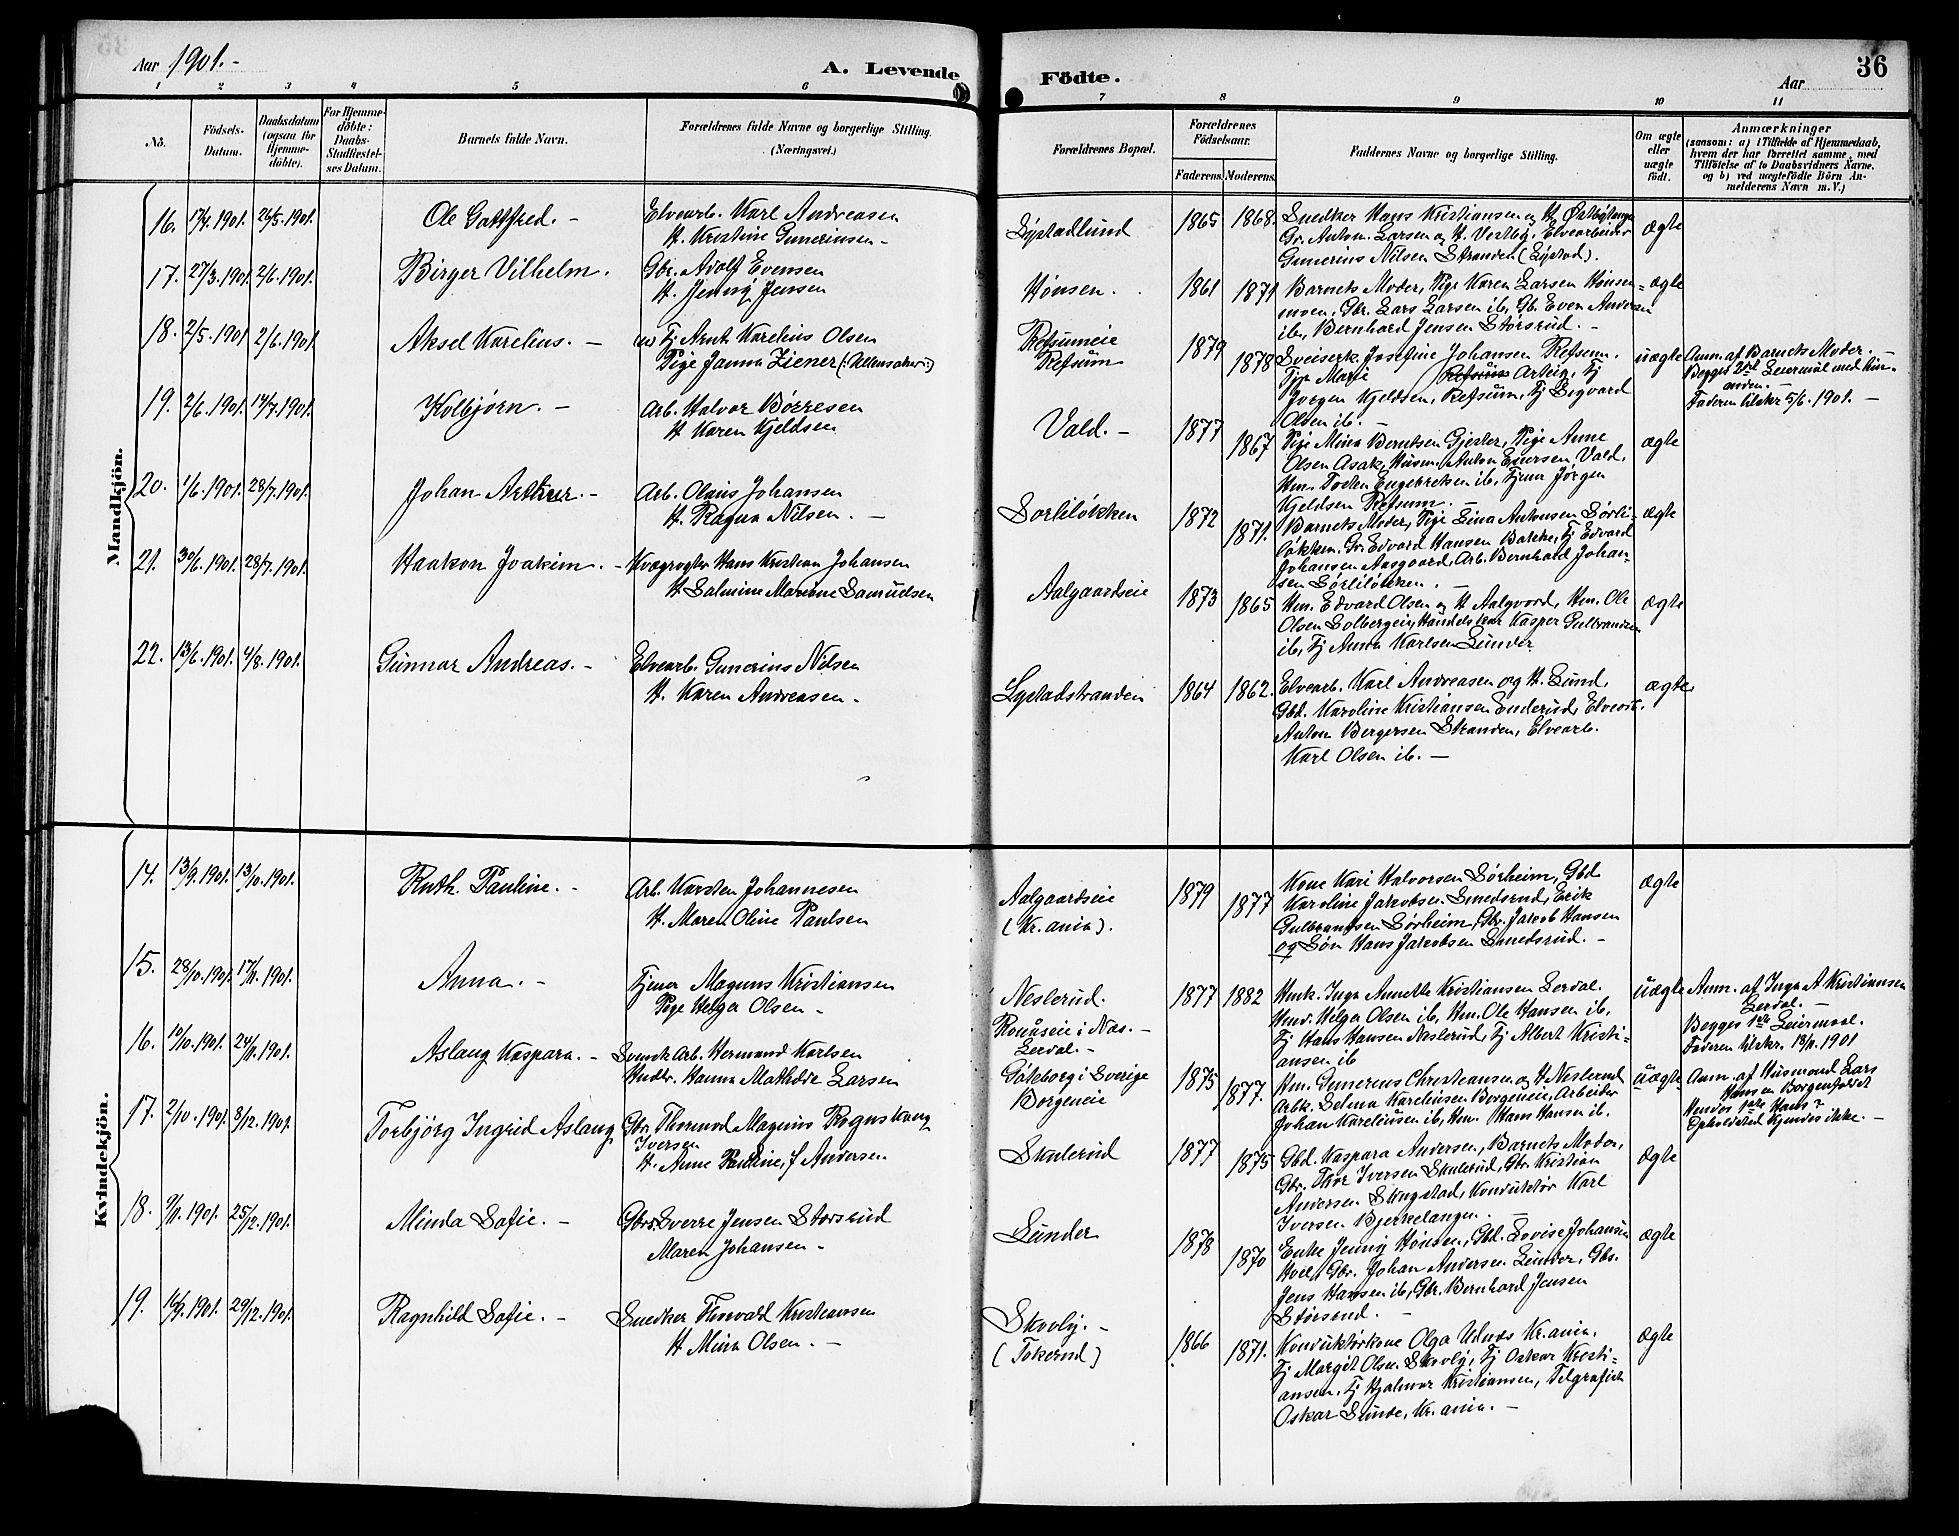 Aar 1901.-
A. Levende
Födte.
Aar
36
1 2 3 4 5 6 7 8 9 10 11
No.
Födsels-Datum.
Daabsdatum (ogsaa for Hjemmedöbte).
For Hjemmedöbte: Daabs-Stadfæstelses Datum.
Barnets fulde Navn.
Forældrenes fulde Navne og borgerlige Stilling.
(Næringsvei.)
Forældrenes Bopæl.
Forældrenes Födselsaar.
Faderens. Moderens.
Faddernes Navne og borgerlige Stilling.
Om ægte eller uægte födt.
Anmærkninger
(saasom: a) i Tilfælde af Hjemmedaab,
hvem der har forrettet samme, med
Tilföielse af to Daabsvidners Navne,
og b) ved uægtefödte Börn Anmelderens Navn m. V.)
Mandkjön.
16. 17/4.1901. 26/5.1901. Ole Gottfred. - Elvearb. Karl Andreasen
H. Kristine Gunerinsen -
Lystadlund 1865 1868. Snedker Hans Kristiansen og H.
Gr. Anton Larsen og H. Vestby, Elvearbeider
Gunerius Nilsen Stranden (Lystad).
ægte
17. 27/3.1901. 2/6.1901. Birger Vilhelm. Gbr. Adolf Evensen
H. Jenny Jensen
Hønsen. 1861 1871 Barnets Moder, Pige Karen Larsen Hønsen-
moen, Gbr. Lars Larsen ib, Gb. Even Andersen
ib, Bernhard Jensen Størsrud. -
ægte
18. 2/5.1901 2/6.1901. Aksel Karelius. - Arnt Karelius Olsen
Pige Janna Ziener (:Ullensaker:)
Refsumeie
Refsum
1879 1878 Sveiserk. Josefine Johansen Refsum.
Marie Arteig, Tj
Jørgen Kjeldsen, Refsum, Tj Sigvard
Olsen ib. -
uægte Anm. af Barnets Moder. -
Begges 2det Leiermaal med hin-
anden. -
Faderen tilskr 5/6.1901. -
19. 2/6.1901. 14/7.1901. Kolbjørn. - Arb. Halvor Børresen
H. Karen Kjeldsen
Vald. - 1877 1867 Pige Mina Berntsen Gjester, Pige Anne
Olsen Asak, Husm. Anton Vald,
Hm. Torsten Engebretsen ib, Tjener Jørgen
Kjeldsen Refsum. -
ægte
20. 1/6.1901. 28/7.1901. Johan Arthur. - Arb. Olaus Johansen
H. Ragna Nilsen. -
Sorliløkken 1872 1871. Barnets Moder, Pige Lina Antonsen Sørli-
løkken. Gr. Edvard Hansen Bakke, Tj Edvard
Johansen Aasgaard, Arb. Bernhard Johan-
sen Sørliløkken. -
ægte
21. 30/6.1901. 28/7.1901. Haakon Joakim. - Kvægrøgter Hans Kristian Johansen
H Salmine Marime Samuelsen
Aalgaardseie 1873 1865 Hm. Edvard Olsen og H Aalgaard, Hm. Ole
Olsen Solbergeie, Kasper Gulbrandsen
ib, Tj Anna Karlsen Lunder
ægte
22. 13/6.1901. 4/8.1901. Gunnar Andreas. - Elvearb. Gunerius Nilsen
H. Karen Andreasen -
Lystadstranden 1864 1862. Elvearb. Karl Andreasen og H. Lund,
Gbd. Karoline Kristiansen Enderud, Elvearb.
Anton Bergersen Stranden, Elvearb.
Karl Olsen ib. -
ægte
Kvindekjön.
14. 13/9.1901. 13/10.1901. Ruth Pauline. - Arb. Karsten Johannesen
H. Maren Oline Paulsen
Aalgaardseie
(Kr.ania).
1879 1877 Kone Kari Halvorsen Sørheim, Gbd
Karoline Jakobsen Smedsrud, Erik
Gulbrandsen Sørheim, Gbr. Jakob Hansen
og Søn Hans Jakobsen Smedsrud. -
ægte
15. 28/10.1901. 17/11.1901. Anna. - Tjener Magnus Kristiansen
Pige Helga Olsen -
Neslerud.
Rouaseie i Nas. -
Lerdal. -
1877 1882 Husk. Inga Annette Kristiansen Lerdal.
Husd. Helga Olsen ib, Hm. Ole Hansen ib,
Tj Hans Hansen Neslerud, Tj Albert Kristi-
ansen ib
uægte Anm. af Inga A Kristiansen
Lerdal. -
Begges 1ste Leiermaal.
Faderen tilskr. 18/11.1901
16. 10/10.1901. 24/11.1901. Aslaug Kaspara. - Svensk Arb. Hermand Karlsen
Husdtr. Hanna Mathilde Larsen
Göteborg i Sverige
Borgeneie
1875 1877. Hm. Gunerius Christiansen og H Neslerud
Arbk. Selma Kareliusen Borgeneie, Arbeider
Johan Kareliusen ib, Hm. Hans Hansen ib.
uægte Anm. af Husmand Lars
Hansen Borgenfaldet
Hendes 1ste Hans?
Opholdsted kjendes ikke. -
17. 2/10.1901. 8/12.1901 Torbjörg Ingrid Aslaug Gbr. Thormod Magnus Rognskaug
Iversen
H. Anne Pauline, f Andersen
Skulerud 1877 1875 Gbd. Kaspara Andersen, Barnets Moder,
Gbr. Thor Iversen Skulerud, Gbr. Kristian
Andersen Skogstad, Konduktør Karl
Iversen Bjerkelangen. -
ægte
18. 9/11.1901. 25/12.1901. Minda Sofie. - Gbrs. Sverre Jensen Størsrud
Maren Johansen -
Lunder 1878 1870 Enke Jenny Hønsen, Gbd. Lovise Johansen
Hvel, Gbr. Johan Andersen Lunder, Gbs.
Jens Hansen ib, Gbr. Bernhard Jensen
Størsrud. -
ægte
19. 16/9.1901. 29/12.1901. Ragnhild Sofie. - Snedker Thorvald Kristiansen
H Mina Olsen. -
Skovly. -
(Tokerud)
1866 1871. Konduktørkone Olga Udnæs Kr.ania.
Tj Margit Olsen Skovly, Tj Oskar Kristi-
ansen, Tj Hjalmar Kristiansen, Telgrafist
Oskar Sunde, Kr.ania. -
ægte